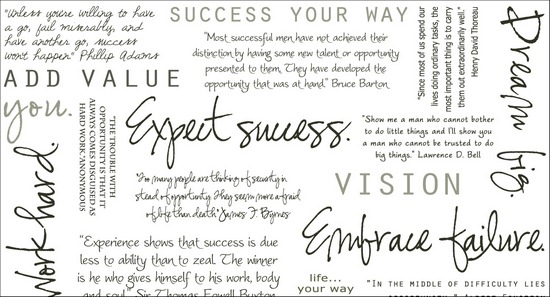 "Unless you're willing to have
a go, fail miserably, and
have another go, success
won't happen." Phillip Adams
SUCCESS YOUR WAY
"Most successful men have not achieved their
distinction by having some new talent or opportunity
presented to them. They have developed the
opportunity that was at hand." Bruce Barton
"Since most of us spend our
lives doing ordinary tasks, the
most important thing is to carry
them out extraordinarily well."
Henry David Thoreau
Dream big.
ADD VALUE
you.
THE TROUBLE WITH
OPPORTUNITY IS THAT IT
ALWAYS COMES DISGUISED AS
HARD WORK."ANONYMOUS
Expect success.
"Show me a man who cannot bother
to do little things and I'll show you
a man who cannot be trusted to do
big things." Lawrence D. Bell
Work hard.
"Too many people are thinking of security in
stead of opportunity. They seem more afraid
of life than death." James F. Byrnes
VISION
"Experience shows that success is due
less to ability than to zeal. The winner
is he who gives himself to his work, body
and soul" Sir Thomas Fowell Buxton
Embrace failure.
life...
your way
"IN THE MIDDLE OF DIFFICULTY LIES